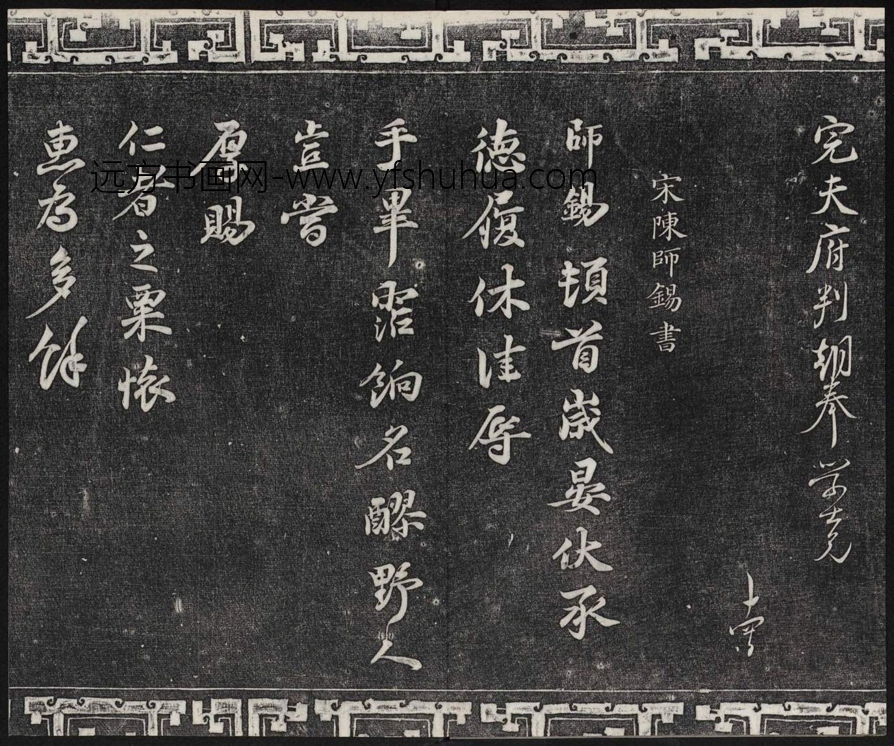 完夫府判朝奉學士兄
宋陳師錫書
師錫頓首歲晏伏承
德履休佳辱
手畢霑餉名醪野人
豈嘗
厚賜
仁者之粟懷
惠為多餘
远方书画网-www.yfshuhua.com